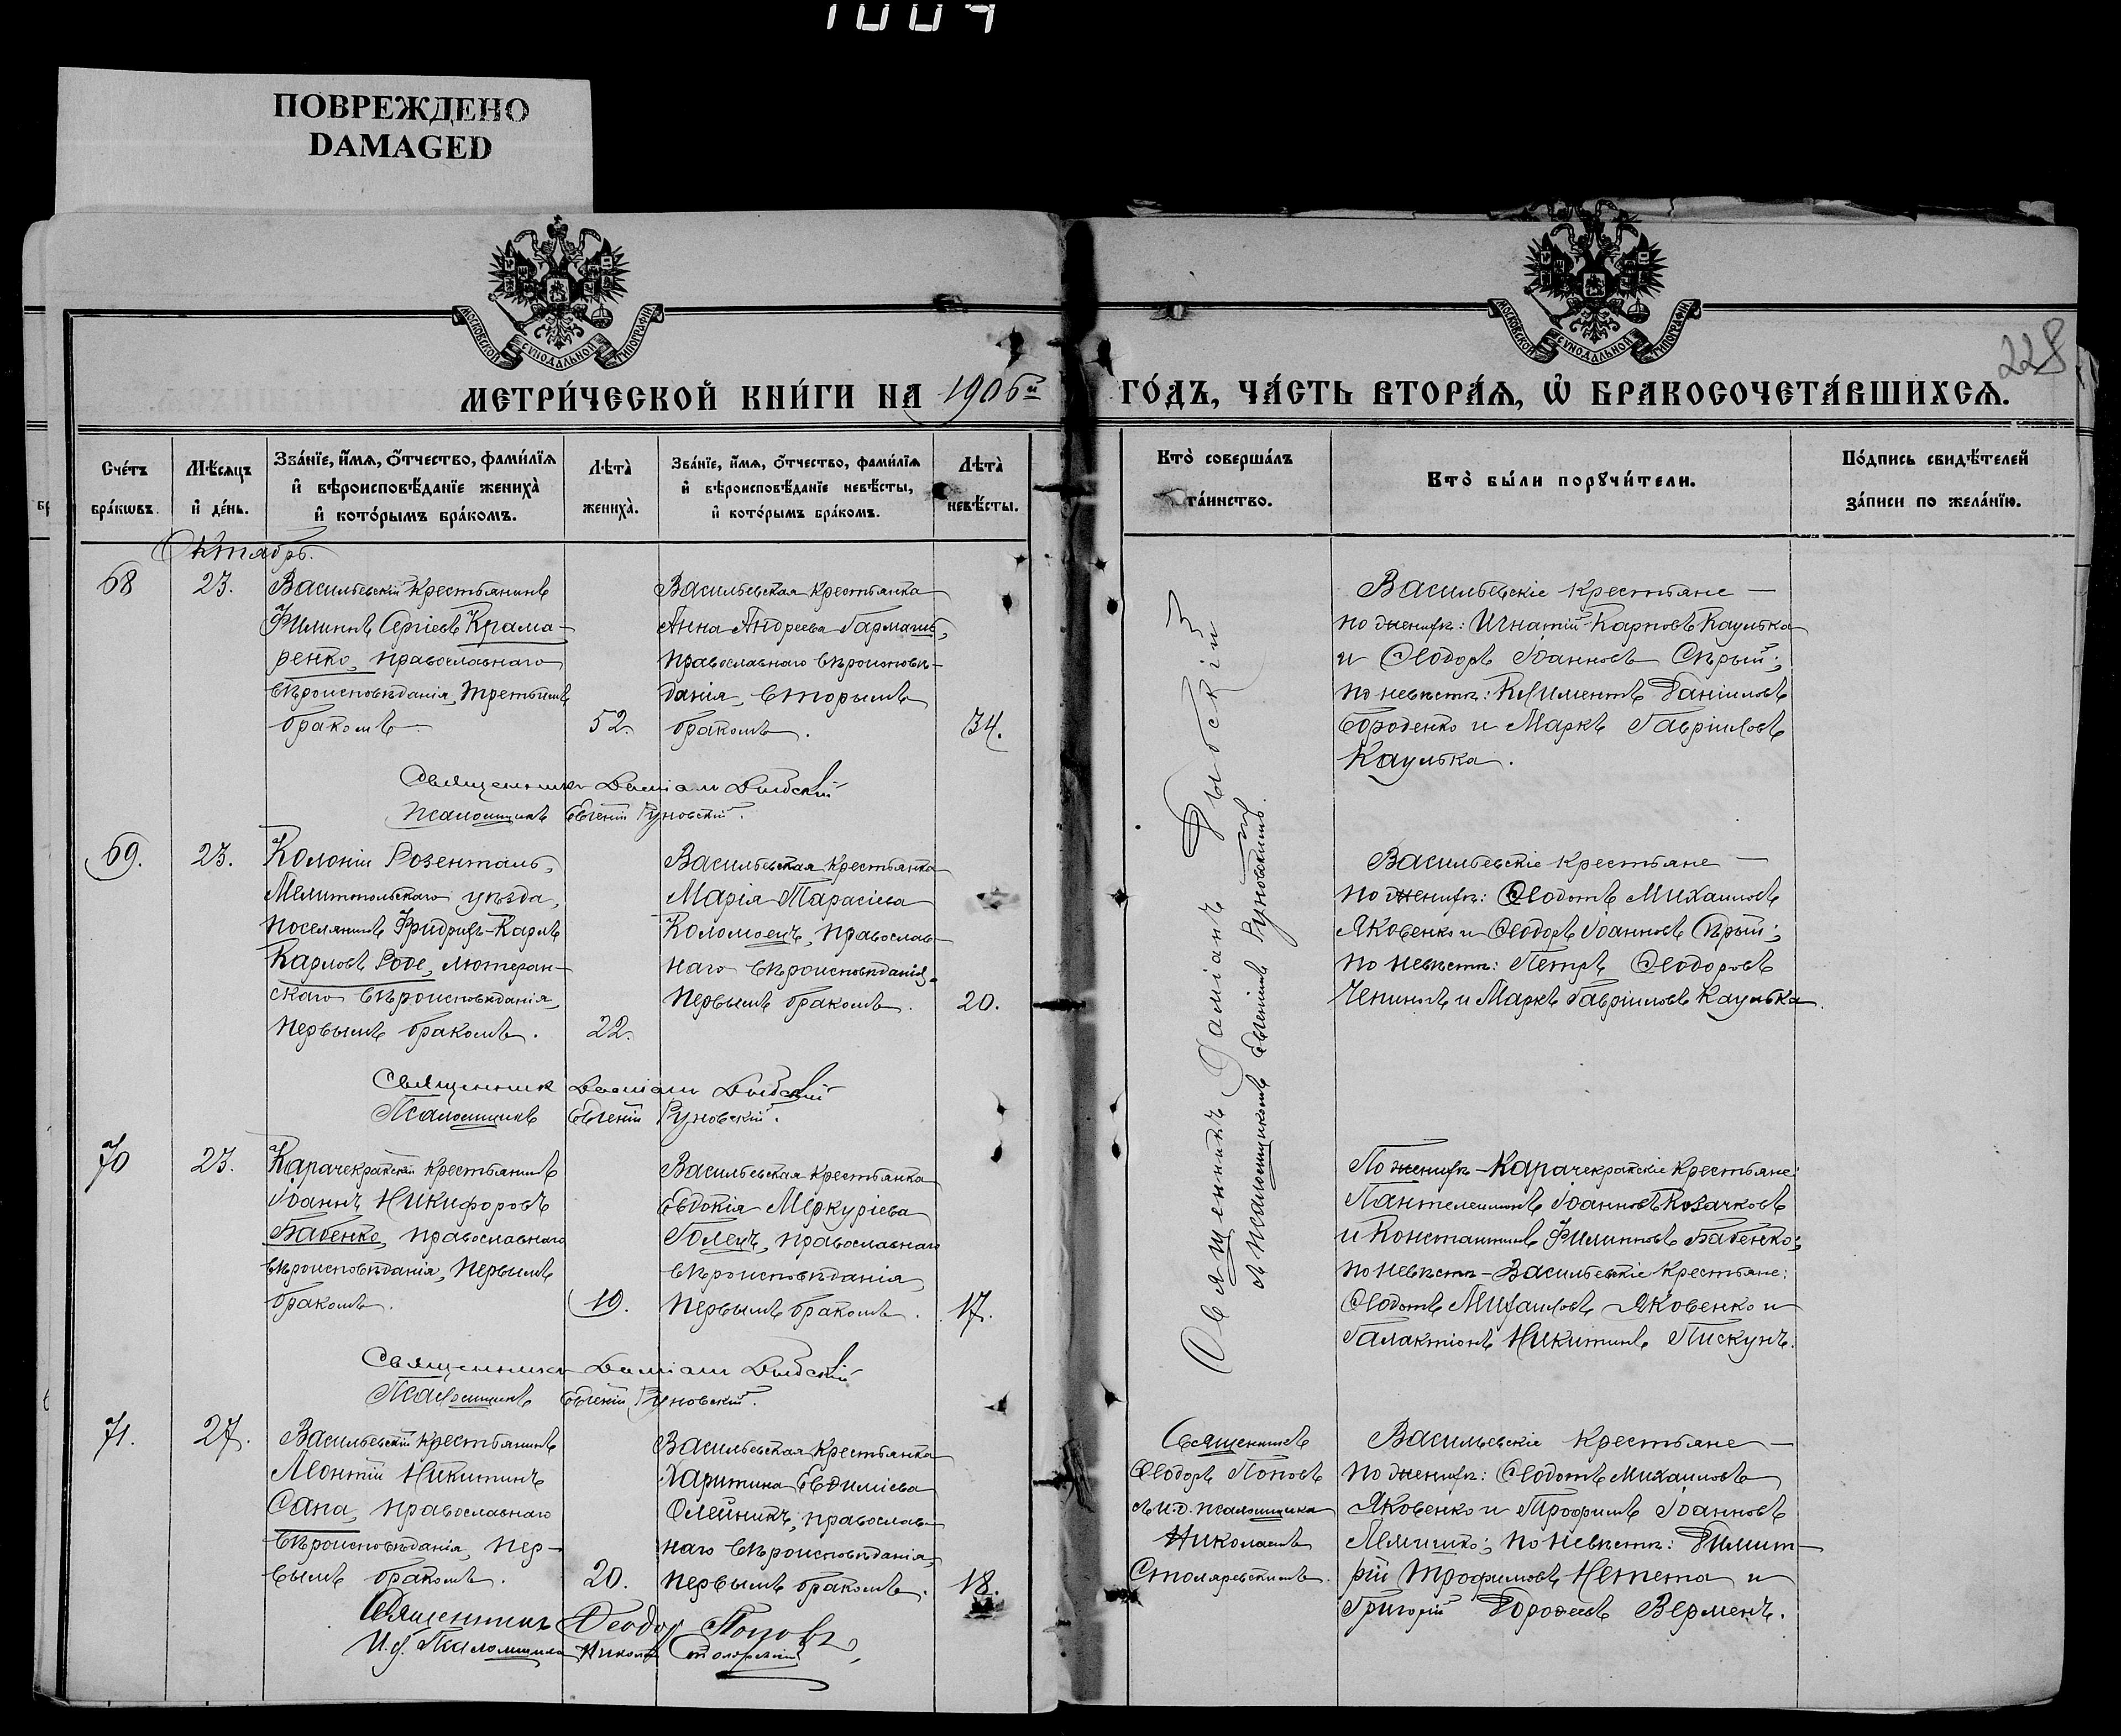 1004
ПОВРЕЖДЕНО
DAMAGED
МОСКОВСКОЙ СУНОДАЛЬНОЙ ТИПОГРАФІИ
МОСКОВСКОЙ СУНОДАЛЬНОЙ ТИПОГРАФІИ
228
МЕТРИ́ЧЕСКОЙ КНИ́ГИ НА 1906й ГО́ДЪ, ЧА́СТЬ ВТОРА́Ѧ, Ѡ҆ БРАКОСОЧЕТА́ВШИХСѦ.
Сче́тъ
бра́кѡвъ.
Мѣ́сяцъ
и҆ де́нь.
Зва́нїе, и҆́мя, ѻ҆́тчество, фами́лїя
и҆ вѣроисповѣ́данїе жениха̀
и҆ кото́рымъ бра́комъ.
Лѣта̀
жениха̀.
Зва́нїе, и҆́мя, ѻ҆́тчество, фами́лїя
и҆ вѣроисповѣ́данїе невѣ́сты,
и҆ кото́рымъ бра́комъ.
Лѣта̀
невѣ́сты.
Кто̀ соверша́лъ
та́инство.
Кто̀ бы́ли порꙋчи́тели.
По́дпись свидѣ́телей
за́писи по жела́нїю.
Октябрь.
68
23.
Васильевскій крестьянинъ
Филиппъ Сергіевъ Крама-
ренко, православнаго
вѣроисповѣданія, третьимъ
бракомъ
52.
Васильевская крестьянка
Анна Андреева Гармашъ,
православнаго вѣроисповѣ-
данія, вторымъ
бракомъ.
34.
Васильевскіе крестьяне —
по женихѣ: Игнатій Карповъ Каулька
и Ѳеодоръ Іоанновъ Сѣрый;
по невѣстѣ: Климентъ Даніиловъ
Бороденко и Маркъ Гавріиловъ
Каулька.
Священникъ Даміанъ Дыбскій
Псаломщикъ Евгеній Руновскій.
69.
23.
Колоніи Розенталь,
Мелитопольскаго уѣзда,
поселянинъ Фридрихъ-Карлъ
Карловъ Роде, лютеран-
скаго вѣроисповѣданія,
первымъ бракомъ.
22.
Васильевская крестьянка
Марія Тарасіева
Коломоецъ, православ-
наго вѣроисповѣданія,
первымъ бракомъ.
20.
Васильевскіе крестьяне —
по женихѣ: Ѳеодотъ Михаиловъ
Яковенко и Ѳеодоръ Іоанновъ Сѣрый;
по невѣстѣ: Петръ Ѳеодоровъ
и Маркъ Гавріиловъ Каулька.
Священникъ Даміанъ Дыбскій
Псаломщикъ Евгеній Руновскій.
70
23.
Карачекракскій крестьянинъ
Іоаннъ Никифоровъ
Бабенко, православнаго
вѣроисповѣданія, первымъ
бракомъ.
19.
Васильевская крестьянка
Евдокія Меркуріева
Голецъ, православнаго
вѣроисповѣданія,
первымъ бракомъ.
17.
По женихѣ - Карачекракскіе крестьяне:
Пантелеимонъ Іоанновъ Козачковъ
и Константинъ Филипповъ Бабенко;
по невѣстѣ - Васильевскіе крестьяне:
Ѳеодотъ Михаиловъ Яковенко и
Галактіонъ Никитинъ Пискунъ.
Священникъ Даміанъ Дыбскій
Псаломщикъ Евгеній Руновскій.
Священникъ Даміанъ Дыбскій
съ псаломщикомъ Евгеніемъ Руновскимъ.
71.
27.
Васильевскій крестьянинъ
Леонтій Никитинъ
Сапа, православнаго
вѣроисповѣданія, пер-
вымъ бракомъ.
20.
Васильевская крестьянка
Харитина Евдиміева
Олейникъ, православ-
наго вѣроисповѣданія,
первымъ бракомъ.
18.
Священникъ
Ѳеодоръ Поповъ
съ и.д. псаломщика
Николаемъ
Столяревскимъ.
Васильевскіе крестьяне —
по женихѣ: Ѳеодотъ Михаиловъ
Яковенко и Трофимъ Іоанновъ
по невѣстѣ: Димит-
рій Трофимовъ Непета и
Григорій Вермень.
Священникъ Ѳеодоръ Поповъ,
И.д. Псаломщика Николай Столяревскій